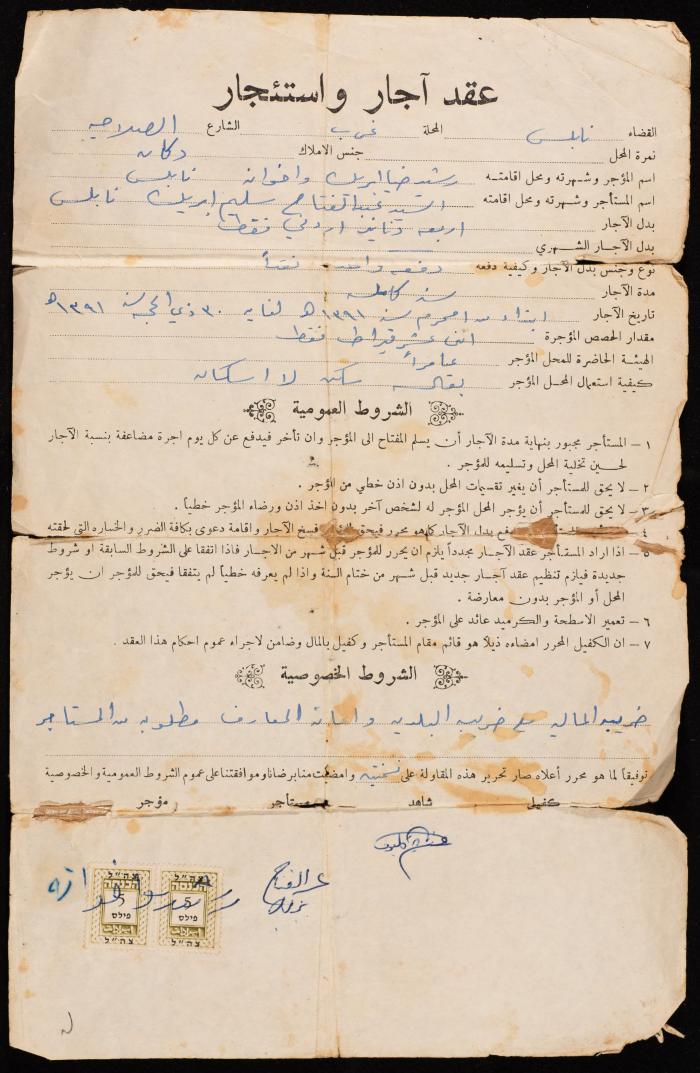 عقد آجار واستئجار
القضاء نابلس المحلة غرب الشارع الصلاحيه
نمرة المحل جنس الاملاك دكان
اسم المؤجر وشهرته ومحل اقامتـه رشيد ضيا ابريك واخوانه نابلس
اسم المستأجر وشهرته ومحل اقامته السيد عبد الفتاح سليم ابريك نابلس
بدل الآجار اربعة دنانير اردني فقط
بدل الآجار الشهري
نوع وجنس بدل الآجار وكيفية دفعه دفعه واحده نقداً
مدة الآجار سنه كامله
تاريخ الآجار ابتداء من امحرم سنه ١٣٩١هـ لغاية ٣٠ ذي الحجه سنه ١٣٩١هـ
مقدار الحصص المؤجرة اثنى عشر قيراط فقط
الهيئة الحاضرة للمحل المؤجر عامراً
كيفية استعمال المحـل المؤجر بقاله سكن لا اسكان
الشروط العمومية
١ – المستأجر مجبور بنهاية مدة الآجار أن يسلم المفتاح الى المؤجر وان تأخر فيدفع عن كل يوم اجرة مضاعفة بنسبة الآجار
لحين تخلية المحل وتسليمه للمؤجر .
٢ – لا يحق للمستأجر أن يغير تقسيمات المحل بدون اذن خطي من المؤجر .
٣ – لا يحق للمستأجر أن يؤجر المحل المؤجر له لشخص آخر بدون اخذ اذن ورضاء المؤجر خطياً .
٤ – يدفع بدل الآجار كما هو محرر فيحق فسخ الآجار واقامة دعوى بكافة الضرر والخساره التي لحقته
٥ – اذا اراد المستأجر عقد الآجـار مجدداً يلزم ان يحرر للمؤجر قبل شهر من الاجسار فاذا اتفقا على الشروط السابقة او شروط
جديدة فيلزم تنظيم عقد آجـار جديد قبل شهـر من ختام السنة واذا لم يعرفه خطياً لم يتفقا فيحق للمؤجر ان يؤجر
المحل أو المؤجر بدون معارضة .
٦ – تعمير الاسطحة والكرميد عائد على المؤجر .
٧ – ان الكفيل المحرر امضاءه ذيلاً هو قائم مقام المستأجر وكفيل بالمال وضامن لاجراء عموم احكام هذا العقد .
الشروط الخصوصية
ضريبة الماليه مع ضريبة البلديه واعانة المعارف مطلوبه من المستاجر
توفيقاً لما هو محرر أعلاه صار تحرير هذه المقاولة على نسختين وامضيت منا برضانا وموافقتنا على عموم الشروط العمومية والخصوصية
كفيل شاهد مستأجر مؤجر
عبد الفتاح
ابريك
צה"ל צה"ל
הכנסה הכנסה
5 5
פילס פילס
צה"ל צה"ל